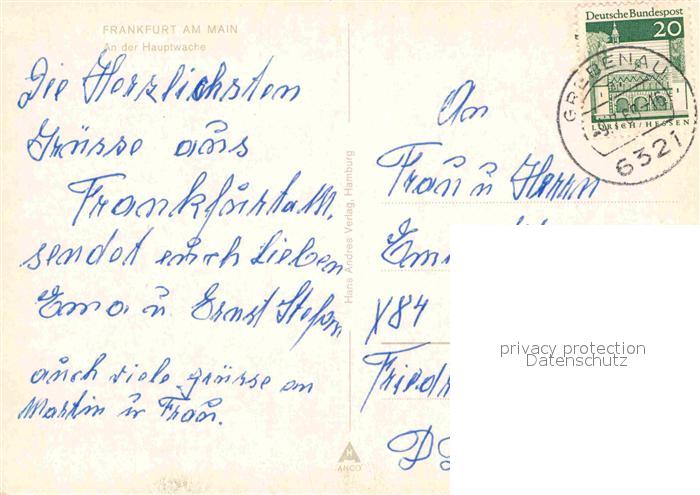 FRANKFURT AM MAIN
An der Hauptwache
Die Herzlichsten
Grüsse aus
Frankfurt a M.
sendet euch Lieben
Ema u Ernst Stefan
auch viele grüsse an
Martin u Frau.
Hans Andres Verlag, Hamburg
ANCO
Deutsche Bundespost
20
LORSCH/HESSEN
GREBENAU
6321
An
Frau u Herrn
X84
Friedr
privacy protection
Datenschutz